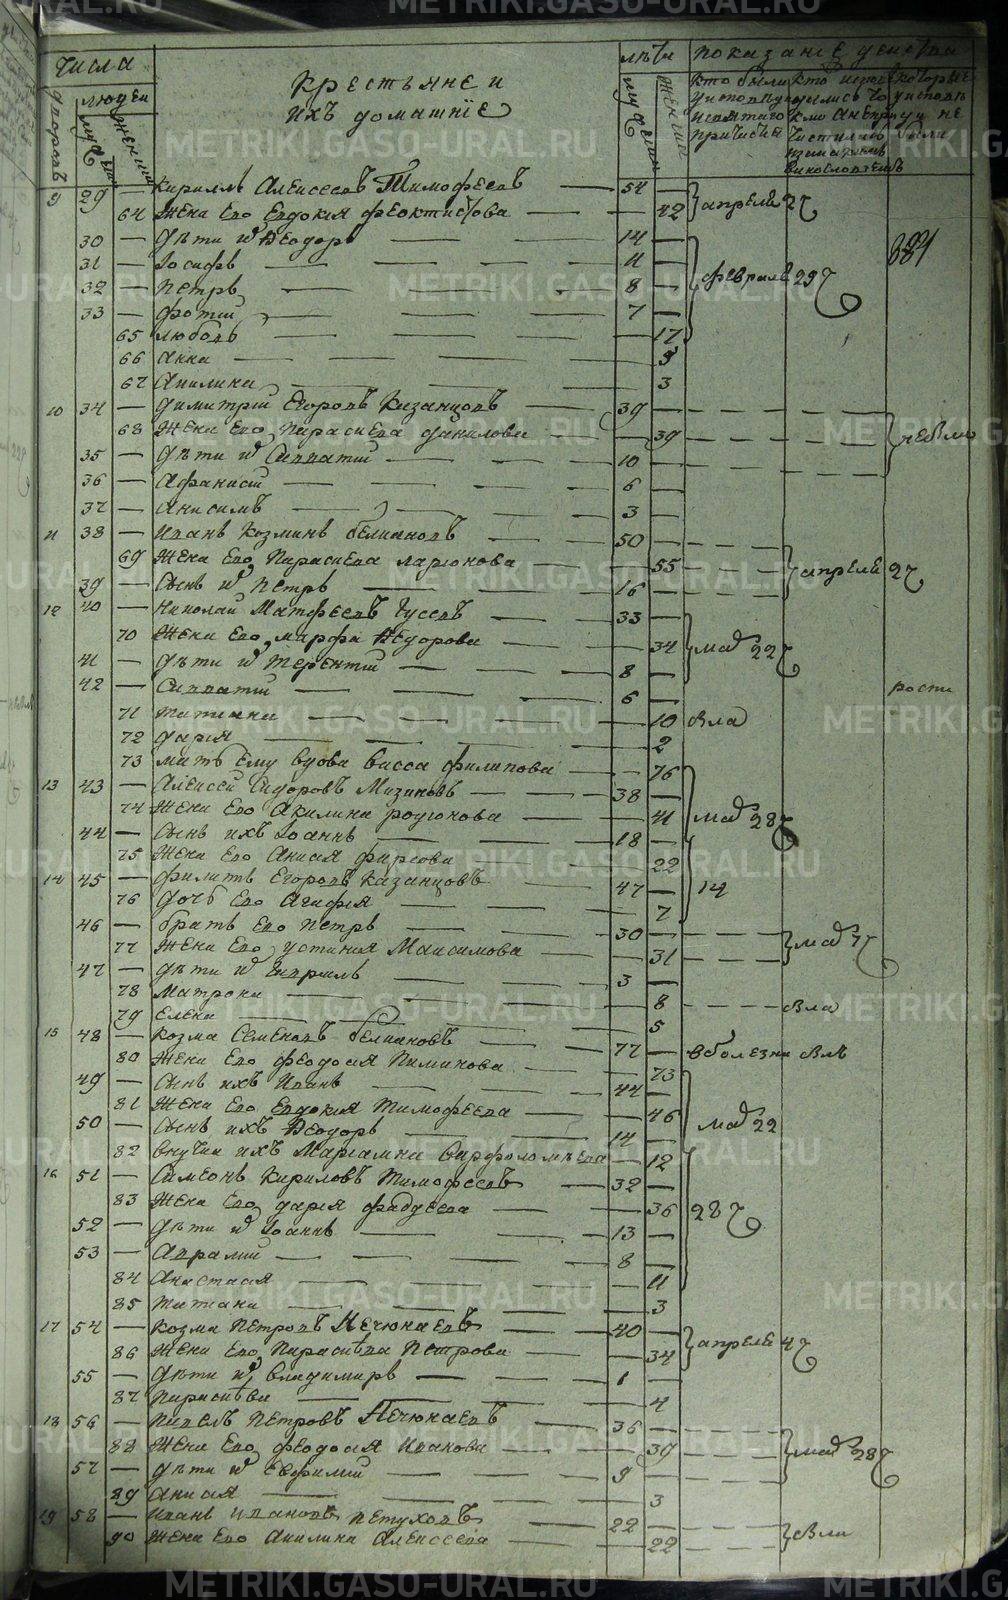 числа
лѣта
показанiе дѣйства
дворовъ
людеи
муж
женска
крестьяне и
ихъ домашнiе
9 29 — Кириллъ Алексеевъ Тимофеевъ — 54 —
64 Жена Его Евдокия Феоктистова — 42 апреля 27
30 — дѣти их Ѳеодоръ — 14 —
31 — Iосифъ — 11 —
32 — Петръ — 8 — февраля 29
33 — Фотий — 7 —
65 Любовь — 17
66 Анна — 5
67 Акилина — 3
10 34 — Димитрiй Егоровъ Казанцовъ — 39 —
68 Жена Его Параскева Данилова — 39 небыли
35 — дѣти их Ипатiй — 10 —
36 — Афанасiй — 6 —
37 — Анисимъ — 3 —
11 38 — Иванъ Козминъ Белиановъ — 50 —
69 Жена Его Параскева Ларионова — 55 апреля 27
39 — Сынъ их Петръ — 16 —
12 40 — Николай Матфеевъ Гусевъ — 33 —
70 Жена Его Марфа Ѳедорова — 34 маiя 22
41 — дѣти их Терентiй — 8 —
42 — Ипатiй — 6 —
71 Татиана — 10 вла
72 Дарiя — 2
73 мать Ему вдова Васса Филипова — 76
13 43 — Алексей Сидоровъ Мизиновъ — 38 —
74 Жена Его Акилина Родионова — 41 маiя 28
44 — Сынъ ихъ Iоаннъ — 18 —
75 Жена Его Анисия Фирсова — 22
14 45 — Филипъ Егоровъ Казанцовъ — 47 — 14
76 дочь Его Агафiя — 7
46 — братъ Его Петръ — 30 —
77 Жена Его Устиния Максимова — 31 маiя 7
47 — дѣти их Гавриилъ — 3 —
78 Матрона — 8 вла
79 Елена — 5
15 48 — Козма Семеновъ Белиановъ — 77 — вболезни влѣ
80 Жена Его Феодосия Пиминова — 73
49 — Сынъ ихъ Иванъ — 44 —
81 Жена Его Евдокия Тимофеева — 46 маiя 22
50 — Сынъ ихъ Ѳеодоръ — 14 —
82 внучка ихъ Марiамна Варфоломѣева — 12
16 51 — Симеонъ Кириловъ Тимофеевъ — 32 —
83 Жена Его Дарiя Фаддеева — 36 28
52 — дѣти их Iоаннъ — 13 —
53 — Авраамий — 8 —
84 Анастасия — 11
85 Татиана — 3
17 54 — Козма Петровъ Нечюнаевъ — 40 —
86 Жена Его Параскѣва Петрова — 34 апреля 4
55 — дѣти их Владимиръ — 1 —
87 Параскѣва — 4
18 56 — Павелъ Петровъ Нечюнаевъ — 36 —
88 Жена Его Феодосия Иванова — 39 маiя 28
57 — дѣти их Евфимий — 9 —
89 Анисия — 3
19 58 — Иванъ Ивановъ Петуховъ — 22 —
90 Жена Его Акилина Алексеева — 22 вла
METRIKI.GASO-URAL.RU